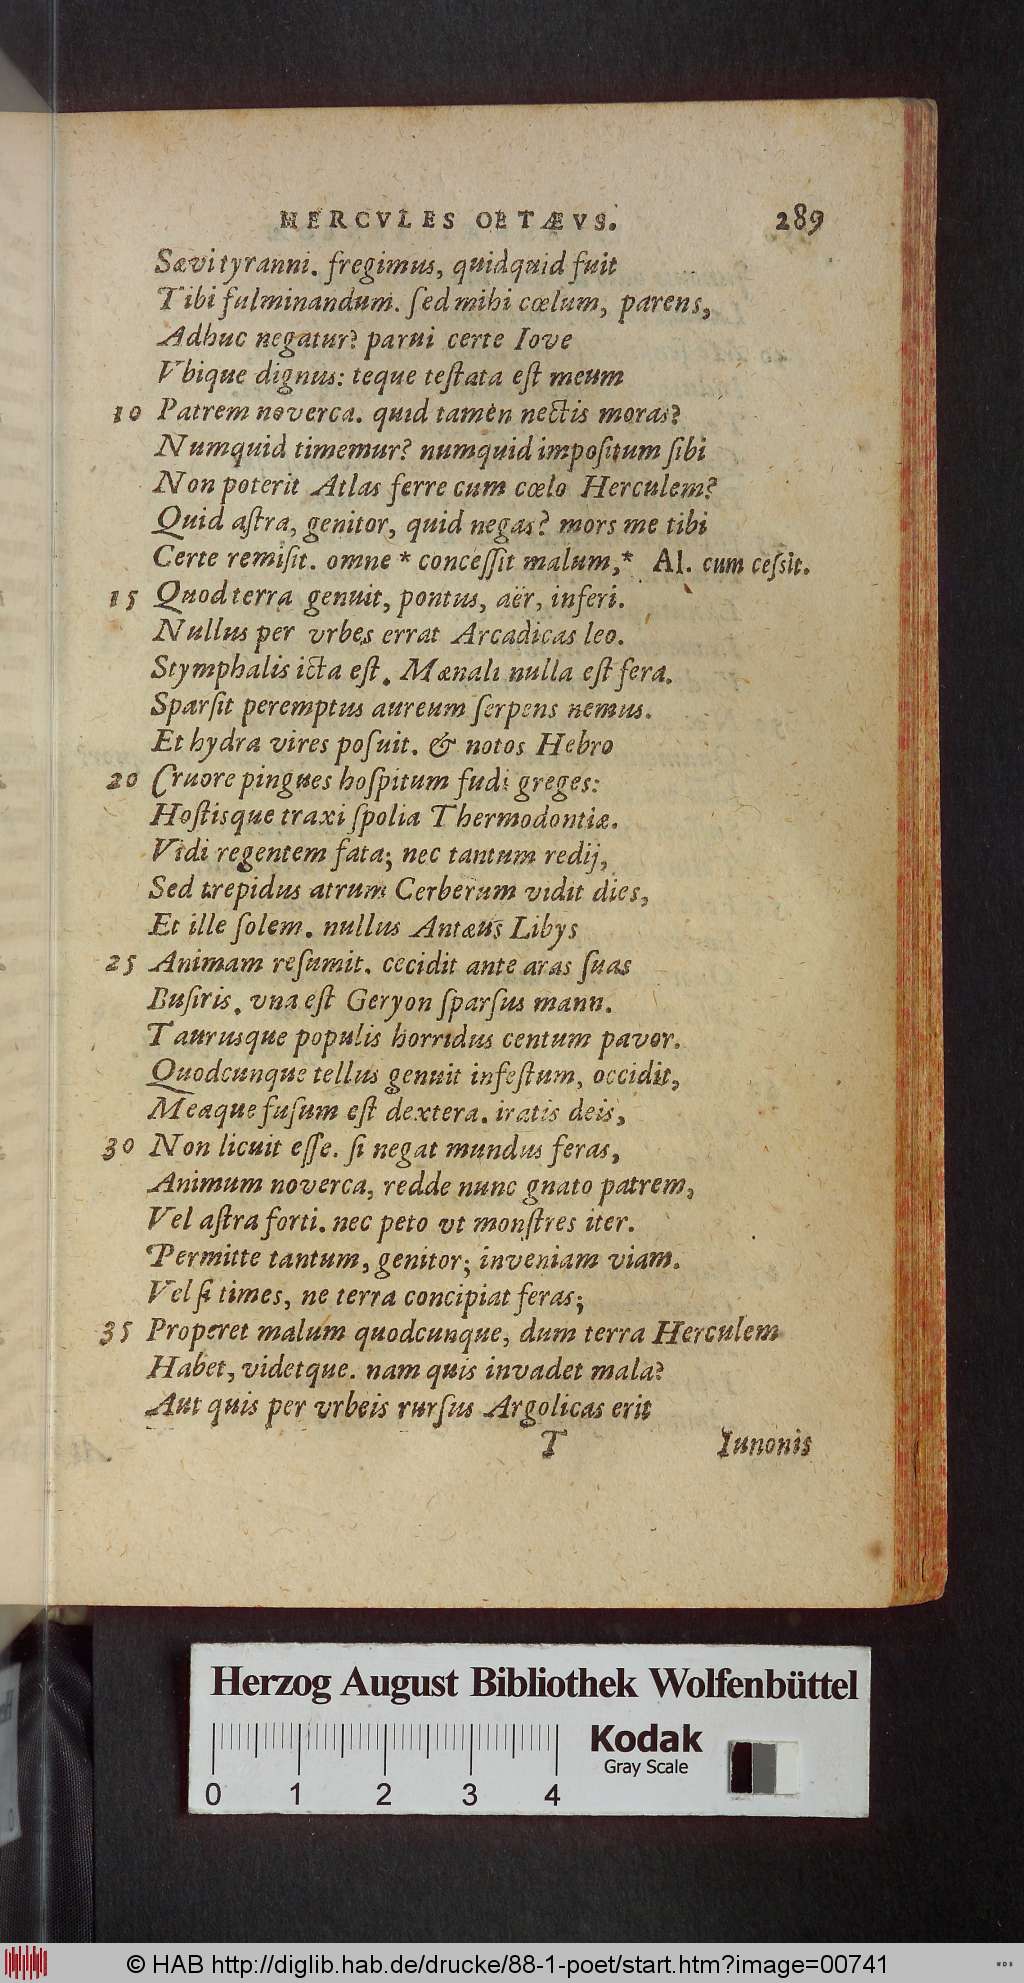 HERCVLES OETÆVS. 289
Sævi tyranni. fregimus, quidquid fuit
Tibi fulminandum. ſed mihi cœlum, parens,
Adhuc negatur? parui certe Iove
Vbique dignus: teque teſtata eſt meum
10 Patrem noverca. quid tamen nectis moras?
Numquid timemur? numquid impoſitum ſibi
Non poterit Atlas ferre cum cœlo Herculem?
Quid aſtra, genitor, quid negas? mors me tibi
Certe remiſit. omne * conceſſit malum,* Al. cum ceſsit.
15 Quod terra genuit, pontus, aër, inferi.
Nullus per vrbes errat Arcadicas leo.
Stymphalis icta eſt. Mænali nulla eſt fera.
Sparſit peremptus aureum ſerpens nemus.
Et hydra vires poſuit. & notos Hebro
20 Cruore pingues hoſpitum fudi greges:
Hoſtisque traxi ſpolia Thermodontiæ.
Vidi regentem fata; nec tantum redij,
Sed trepidus atrum Cerberum vidit dies,
Et ille ſolem. nullus Antæus Libys
25 Animam reſumit. cecidit ante aras ſuas
Buſiris. vna eſt Geryon ſparſus manu.
Taurusque populis horridus centum pavor.
Quodcunque tellus genuit infeſtum, occidit,
Meaque fuſum eſt dextera. iratis deis,
30 Non licuit eſſe. ſi negat mundus feras,
Animum noverca, redde nunc gnato patrem,
Vel aſtra forti. nec peto vt monſtres iter.
Permitte tantum, genitor; inveniam viam.
Vel ſi times, ne terra concipiat feras;
35 Properet malum quodcunque, dum terra Herculem
Habet, videtque. nam quis invadet mala?
Aut quis per vrbeis rurſus Argolicas erit
T Iunonis
Herzog August Bibliothek Wolfenbüttel
Kodak
Gray Scale
0 1 2 3 4
© HAB http://diglib.hab.de/drucke/88-1-poet/start.htm?image=00741